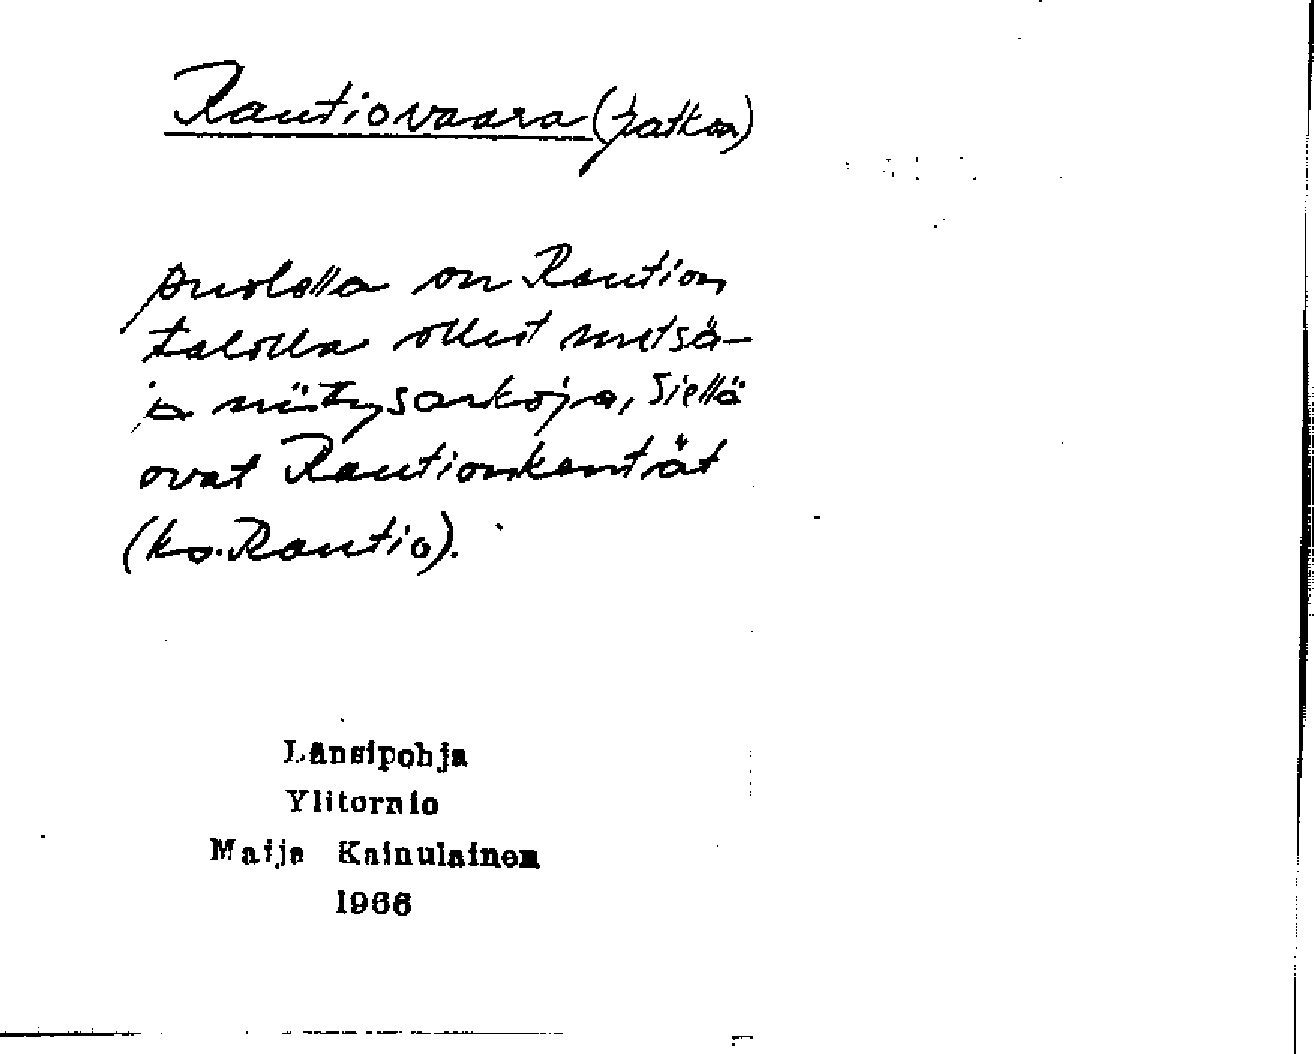 Rautiovaara (jatkoa)
puolella on Raution
talolla ollut metsä-
ja niittysarkoja, Siellä
ovat Rautionkentät
(ks. Rautio).
Länsipohja
Ylitornio
Maija Kainulainen
1966